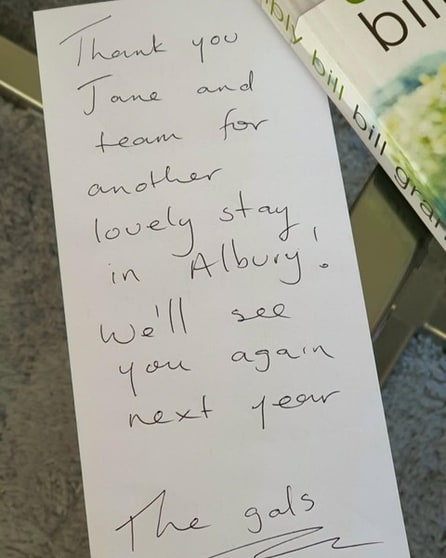 Thank you
Jane and
team for
another
lovely stay
in Albury!
We'll see
you again
next year
The gals
bill
bill bill gra